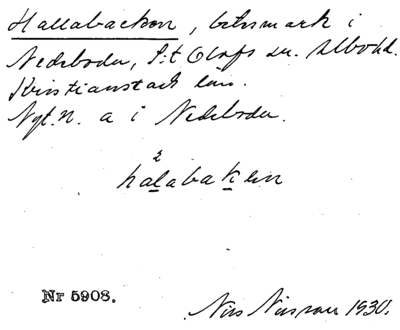 Hallabacken, betesmark i
Nedeboda, S:t Olofs sn. Albo hd.
Kristianstads län.
Nytt.n. a i Nedeboda.
2
halabaken
Nr 5908.
Nils Nilsson 1930.